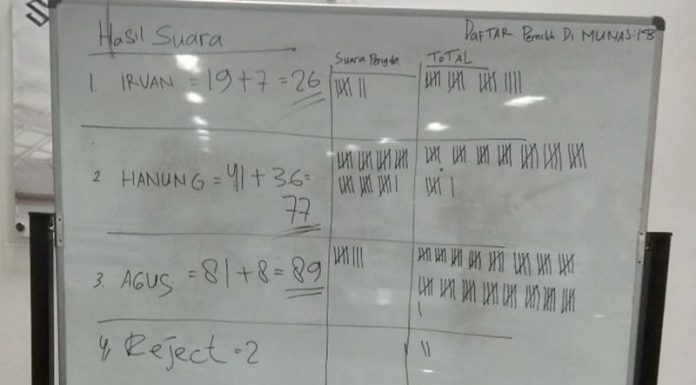 Hasil Suara
DAFTAR Pemilih Di MUNAS:158
Suara Pengda
TOTAL
1. IRVAN = 19 + 7 = 26
2. HANUNG = 41 + 36 =
77
3. AGUS = 81 + 8 = 89
4. Reject = 2